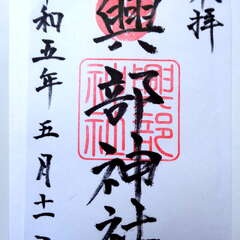 奉拝
興部神社
興部
神社
和五年五月十一日